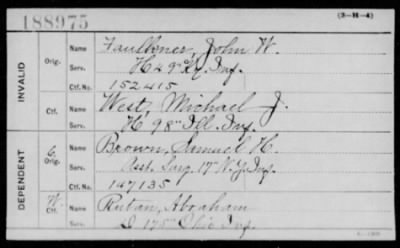 188975
(3-H-4)
INVALID
Orig.
Name Faulkner, John W.
Serv. H 49" Ky. Inf.
Ctf. No. 152415
Ctf.
Name West, Michael J.
Serv. H 98" Ill. Inf.
DEPENDENT
C. Orig.
Name Brown, Samuel H.
Serv. Asst. Surg. 17" N.Y. Inf.
Ctf. No. 147135
W. Ctf.
Name Rutan, Abraham
Serv. 175" Ohio Inf.